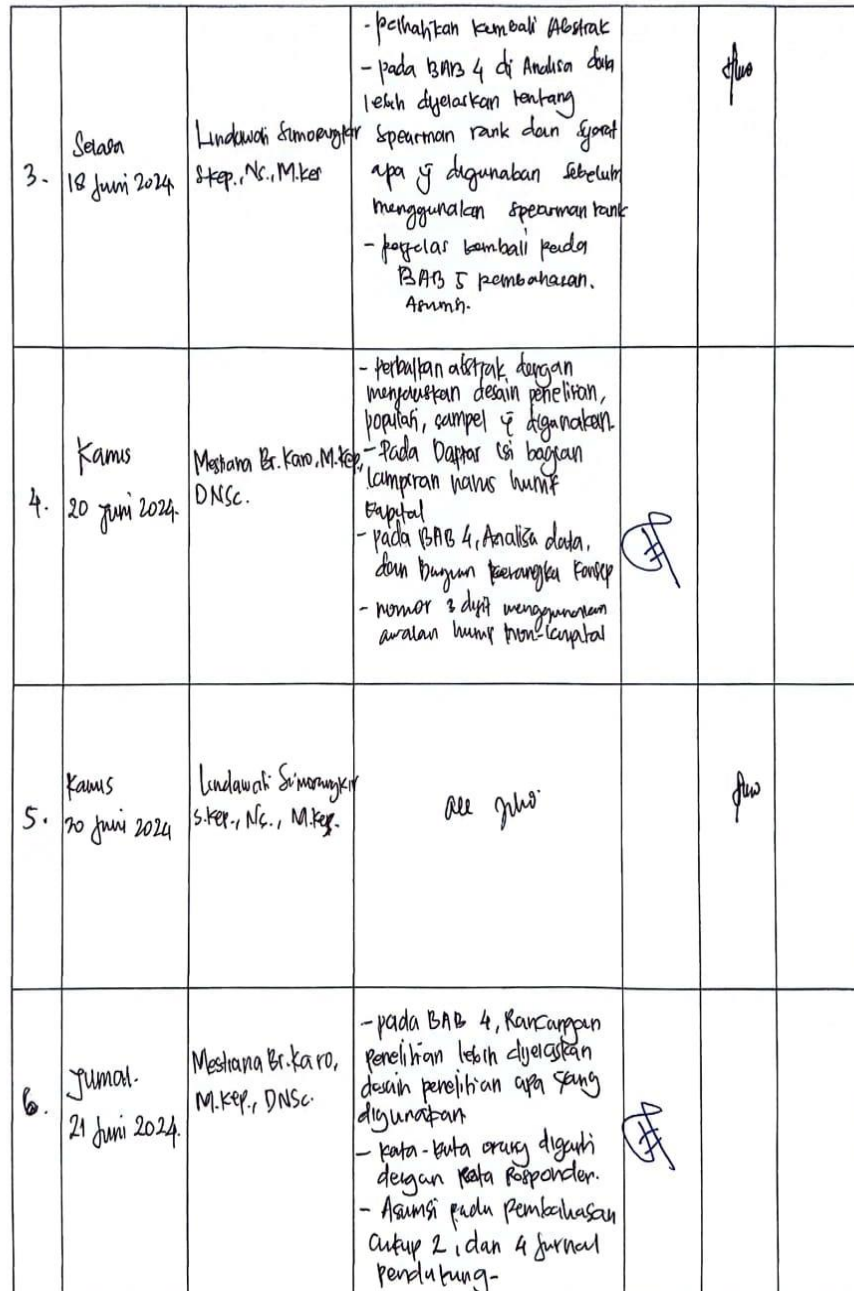 3.
Selasa
18 Juni 2024
Lindawati Simorangkir
S.kep., Ns., M.Kes
- perhatikan kembali Abstrak
- pada BAB 4 di Analisa data
lebih dijelaskan tentang
spearman rank dan syarat
apa yg digunakan sebelum
menggunakan spearman rank
- perjelas kembali pada
BAB 5 pembahasan.
Asumsi.
4.
Kamis
20 Juni 2024.
Mestiana Br. Karo, M.Kep.,
DNSc.
- Perbaikan abstrak dengan
desain penelitian,
populasi, sampel yg digunakan.
- Pada Daftar isi bagian
lampiran harus huruf
kapital
- pada BAB 4, Analisa data,
dan bagian kerangka konsep
- nomor 3 digit menggunakan
awalan huruf non-kapital
5.
Kamis
20 Juni 2024
Lindawati Simorangkir
S.kep., Ns., M.Kep.
6.
Jumat.
21 Juni 2024.
Mestiana Br. Karo,
M.Kep., DNSc.
- pada BAB 4, Rancangan
penelitian lebih dijelaskan
desain penelitian apa yang
digunakan
- kata-kata orang diganti
dengan kata Responden.
- Asumsi pada Pembahasan
cukup 2, dan 4 Jurnal
pendukung-